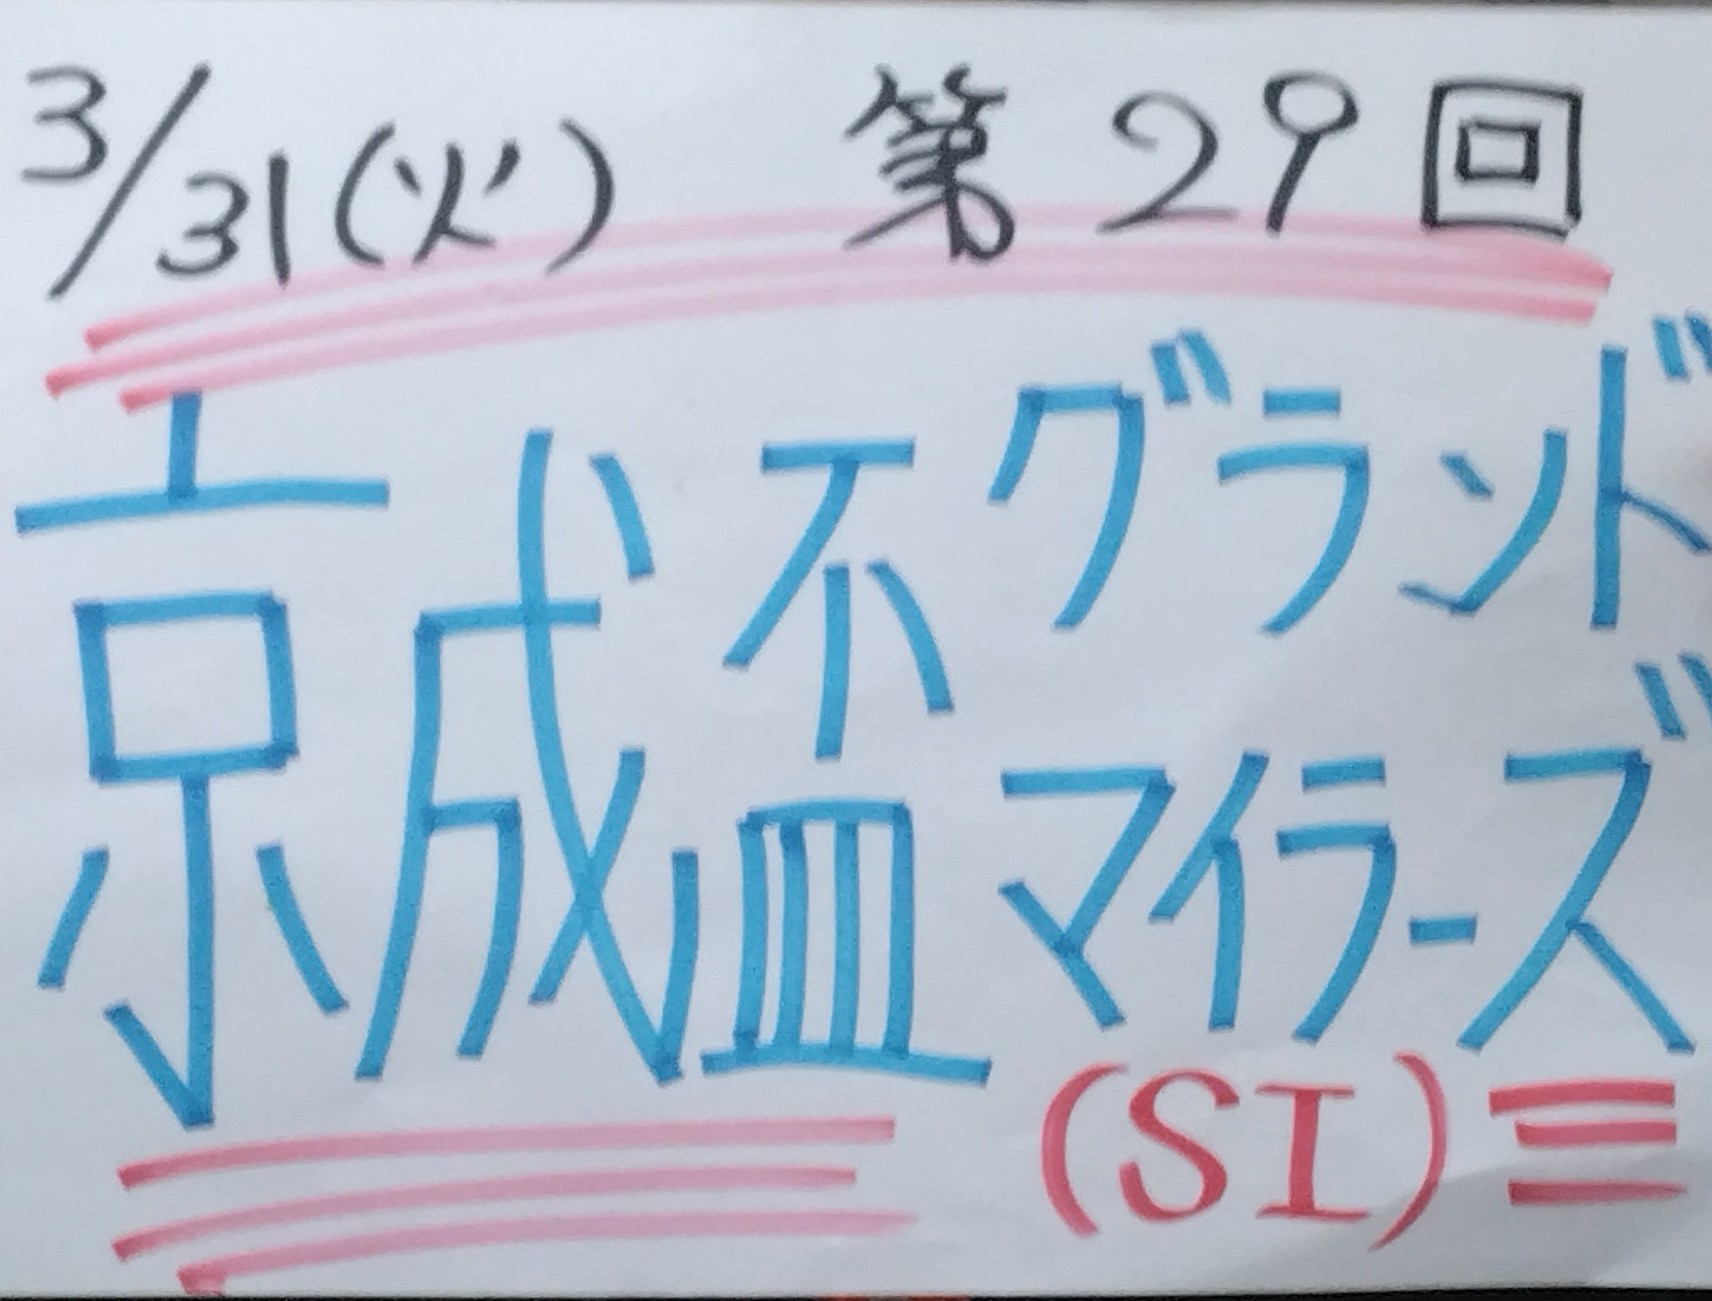 3/31(火) 第29回
京成盃グランド
マイラーズ
(SI)